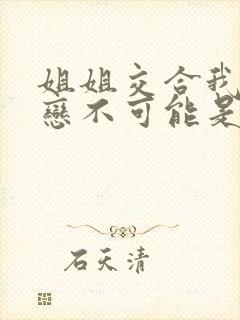 姐姐交合我
戀不可能是
石天清